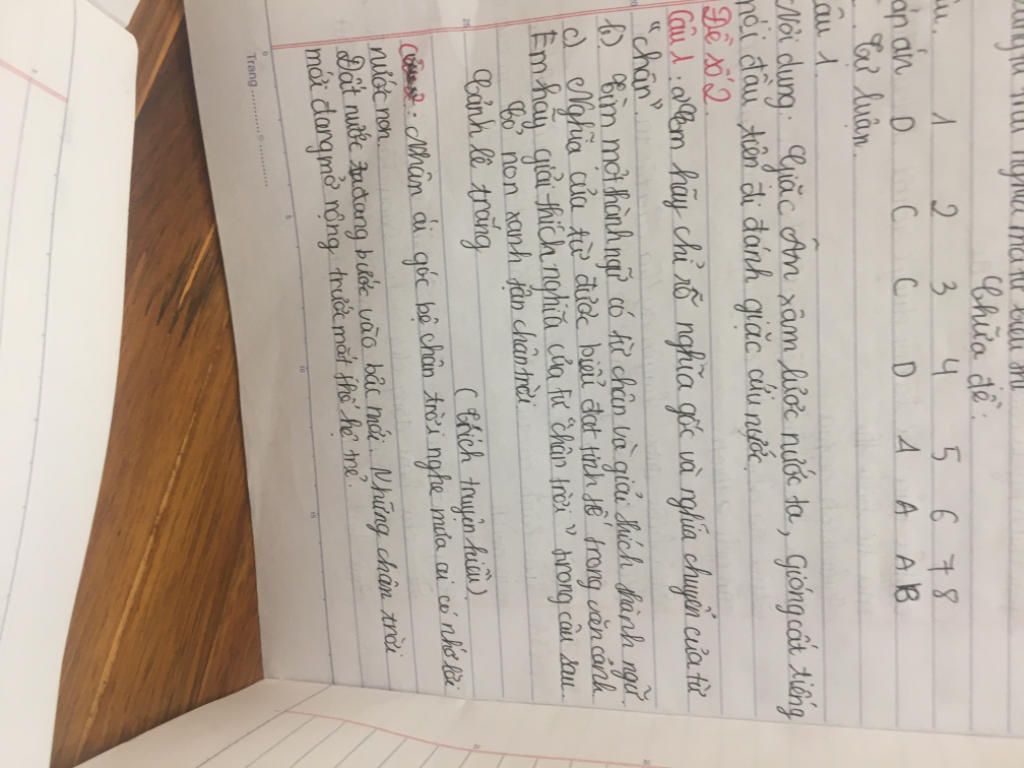 Chữa đề:
1 2 3 4 5 6 7 8
đáp án D C C D A A A B
Tự luận.
Câu 1.
Nội dung: Giặc Ân xâm lược nước ta, Gióng cất tiếng
nói đầu tiên đi đánh giặc cứu nước.
Đề số 2.
Câu 1: a, Em hãy chỉ rõ nghĩa gốc và nghĩa chuyển của từ
"chân".
b) Tìm mở thành ngữ có từ chân và giải thích thành ngữ.
c) Nghĩa của từ được biểu đạt tinh tế trong văn cảnh
Em hãy giải thích nghĩa của từ "chân trời" trong câu sau.
Cỏ non xanh tận chân trời
Cảnh lê trắng
(Trích truyện Kiều)
Nhân ái gốc bệ chân trời nghe mưa ai có nhớ lời
nước non.
Đất nước đang bước vào bãi mới. Những chân trời
mới đang mở rộng trước mắt thế hệ trẻ.
Trang